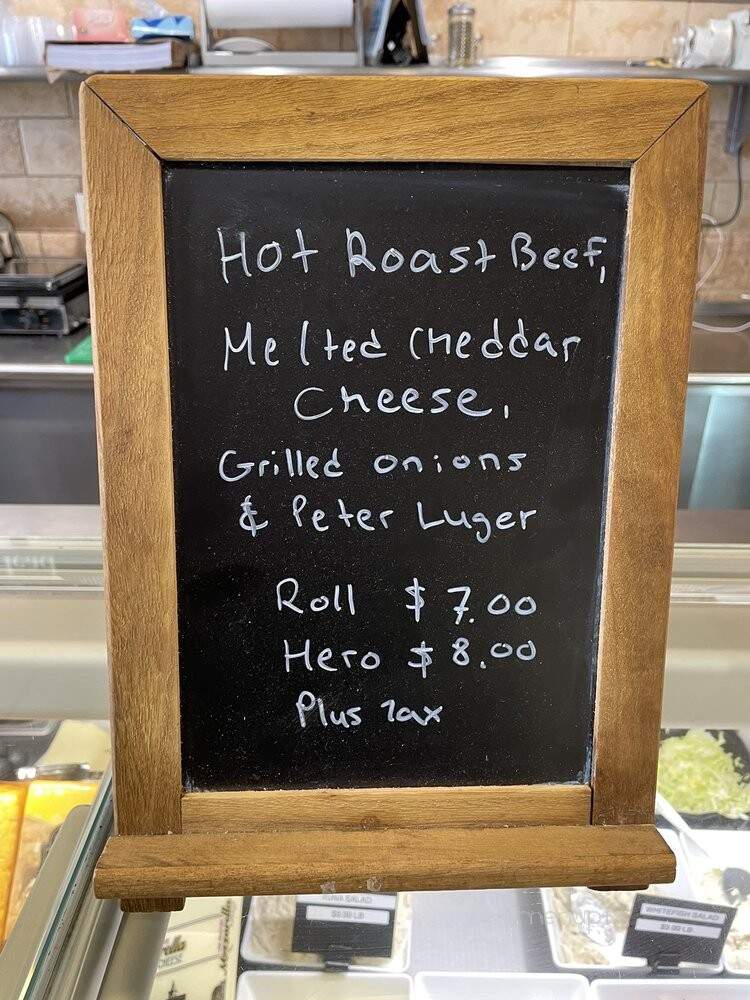 Hot Roast Beef,
Melted Cheddar
Cheese,
Grilled onions
& Peter Luger
Roll $7.00
Hero $8.00
Plus Tax
TUNA SALAD
WHITEFISH SALAD